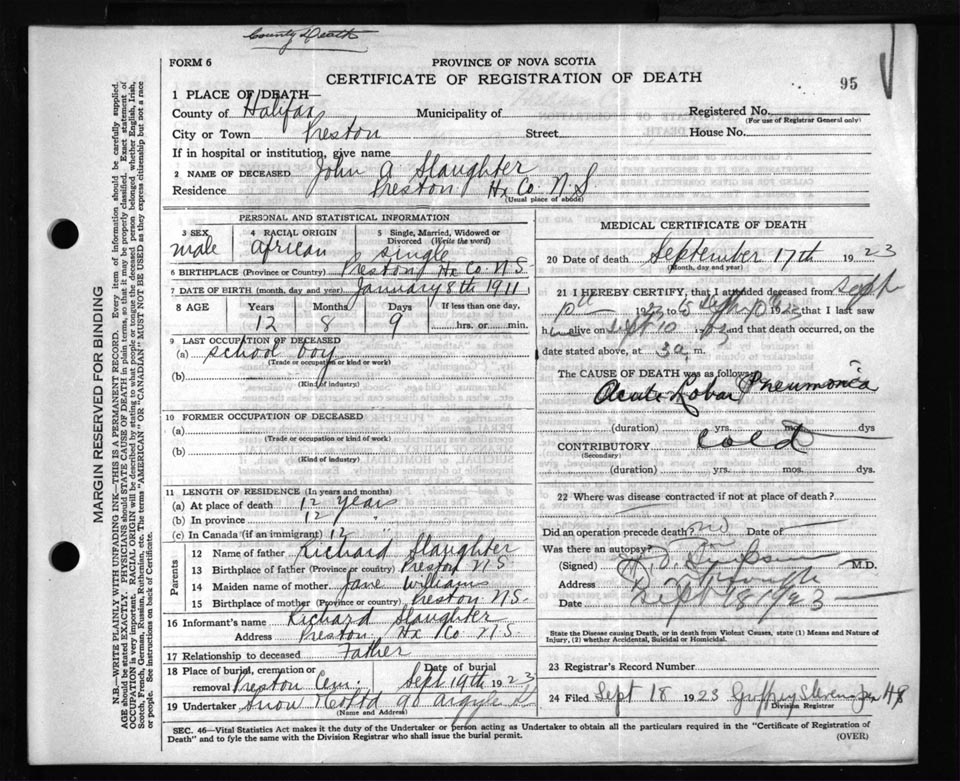 County Death
FORM 6
PROVINCE OF NOVA SCOTIA
CERTIFICATE OF REGISTRATION OF DEATH
95
1 PLACE OF DEATH—
County of Halifax Municipality of Registered No.
(For use of Registrar General only)
City or Town Preston Street House No.
If in hospital or institution, give name
2 NAME OF DECEASED John A Slaughter
Residence Preston Hx Co. N.S
(Usual place of abode)
PERSONAL AND STATISTICAL INFORMATION
3 SEX male
4 RACIAL ORIGIN African
5 Single, Married, Widowed or Divorced (Write the word) single
6 BIRTHPLACE (Province or Country) Preston Hx Co. N.S.
7 DATE OF BIRTH (month, day and year) January 8th 1911
8 AGE Years Months Days If less than one day,
12 8 9 hrs. or min.
9 LAST OCCUPATION OF DECEASED
(a) school boy
(Trade or occupation or kind of work)
(b)
(Kind of industry)
10 FORMER OCCUPATION OF DECEASED
(a)
(Trade or occupation or kind of work)
(b)
(Kind of industry)
11 LENGTH OF RESIDENCE (In years and months)
(a) At place of death 12 years
(b) In province 12 "
(c) In Canada (if an immigrant) 12
Parents
12 Name of father Richard Slaughter
13 Birthplace of father (Province or country) Preston NS
14 Maiden name of mother Jane Williams
15 Birthplace of mother (Province or country) Preston NS.
16 Informant's name Richard Slaughter
Address Preston Hx Co NS.
17 Relationship to deceased Father
18 Place of burial, cremation or removal Preston Cem. Date of burial Sept 19th 1923
19 Undertaker Snow & Co Ltd 90 Argyle St
(Name and Address)
MEDICAL CERTIFICATE OF DEATH
20 Date of death September 17th 1923
(Month, day and year)
21 I HEREBY CERTIFY, that I attended deceased from Sept
1923 to Sept 10 1923 that I last saw
him alive on Sept 10 1923 and that death occurred, on
date stated above, at 3 a. m.
The CAUSE OF DEATH was as follows:
Acute Lobar Pneumonia
(duration) yrs. mos. dys
CONTRIBUTORY cold
(Secondary)
(duration) yrs. mos. dys.
22 Where was disease contracted if not at place of death?
Did an operation precede death? no Date of
Was there an autopsy?
(Signed) M.D.
Address
Date Sept 18 1923
State the Disease causing Death, or in death from Violent Causes, state (1) Means and Nature of
Injury, (2) whether Accidental, Suicidal or Homicidal.
23 Registrar's Record Number
24 Filed Sept 18 1923
Division Registrar
SEC. 46—Vital Statistics Act makes it the duty of the Undertaker or person acting as Undertaker to obtain all the particulars required in the "Certificate of Registration of
Death" and to fyle the same with the Division Registrar who shall issue the burial permit.
(OVER)
MARGIN RESERVED FOR BINDING
N.B.—WRITE PLAINLY WITH UNFADING INK—THIS IS A PERMANENT RECORD. Every item of information should be carefully supplied.
AGE should be stated EXACTLY. PHYSICIANS should STATE CAUSE OF DEATH in plain terms, so that it may be properly classified. Exact statement of
OCCUPATION is very important. RACIAL ORIGIN will be described by stating to what people or tongue the deceased person belonged whether English, Irish,
Scotch, French, German, Russian, Ruthenian, etc. The terms "AMERICAN" OR "CANADIAN" MUST NOT BE USED as they express citizenship but not a race
or people. See instructions on back of Certificate.